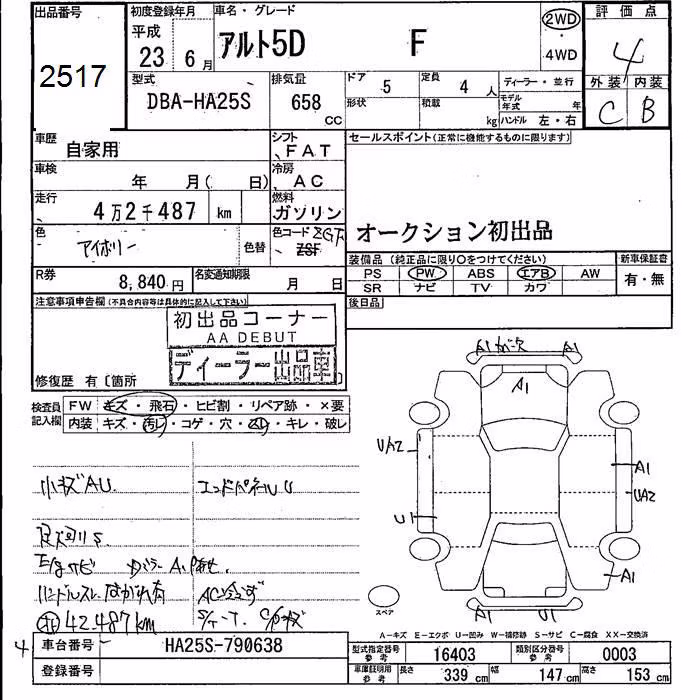 出品番号
2517
初度登録年月
平成
23 年 6 月
車名・グレード
アルト5D F
2WD
・
4WD
評価点
4
外装 内装
C B
型式
DBA-HA25S
排気量
658
CC
ドア
5
定員
4 人
形状
積載
kg
ディーラー・並行
モデル年式 年
ハンドル 左・右
車歴
自家用
シフト
FAT
車検
年 月( 日)
冷房
AC
走行
4万2千487 km
燃料
ガソリン
色
アイボリー
色替
色コード ZGF
ZSF
R券
8,840円
名変通知期限
月 日
セールスポイント(正常に機能するものに限ります)
オークション初出品
装備品(純正品に限り○をつけてください)
PS PW ABS エアB AW
SR ナビ TV カワ
新車保証書
有・無
後日品
注意事項申告欄(不具合内容等は具体的に記入して下さい)
初出品コーナー
AA DEBUT
ディーラー出品車
修復歴 有〔箇所
検査員
記入欄
FW キズ・飛石・ヒビ割・リペア跡・×要
内装 キズ・汚レ・コゲ・穴・スレ・キレ・破レ
小キズAU
エンドパネルU
E/gサビ
ハンドルスレ
42.487km
A1 A1
A1
UA2
U
A1
UA2
A1
A1 U1
スペア
A−キズ E−エクボ U−凹み W−補修跡 S−サビ C−腐食 XX−交換済
4
車台番号 HA25S-790638
登録番号
型式指定番号
参考
16403
類別区分番号
参考
0003
車庫証明用
参考
長さ 339 cm
幅 147 cm
高さ 153 cm